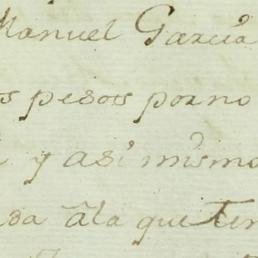 Manuel Garcia
os pesos porno
y asi mismo
da âla que ten